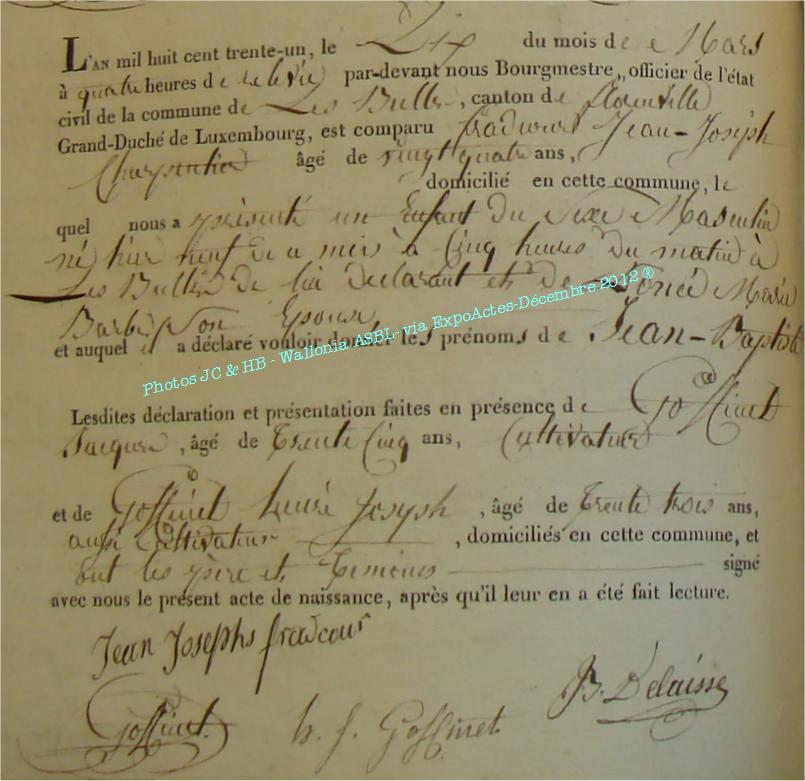 L'AN mil huit cent trente-un, le Dix du mois de Mars
à quatre heures de relevée par-devant nous Bourgmestre, officier de l'état
civil de la commune de Les Bulles, canton de florenville
Grand-Duché de Luxembourg, est comparu fradcourt Jean-Joseph
Charpentier âgé de vingt quatre ans,
domicilié en cette commune, le
quel nous a présenté un Enfant du Sexe Masculin
né hier neuf de ce mois à Cinq heures du matin à
Les Bulles de lui déclarant et de Marie
Barbe Son Epouse
et auquel il a déclaré vouloir donner les prénoms de Jean-Baptiste
Photos JC & HB - Wallonia ASBL- via ExpoActes-Décembre 2012 ®
Lesdites déclaration et présentation faites en présence de Goffinet
Jacques, âgé de Trente Cinq ans, Cultivateur
et de Goffinet henri Joseph, âgé de Trente trois ans,
aussi Cultivateur, domiciliés en cette commune, et
ont les père et Temoins signé
avec nous le présent acte de naissance, après qu'il leur en a été fait lecture.
Jean Josephs fradcour
B. Delaisse
Goffinet
h. j. Goffinet